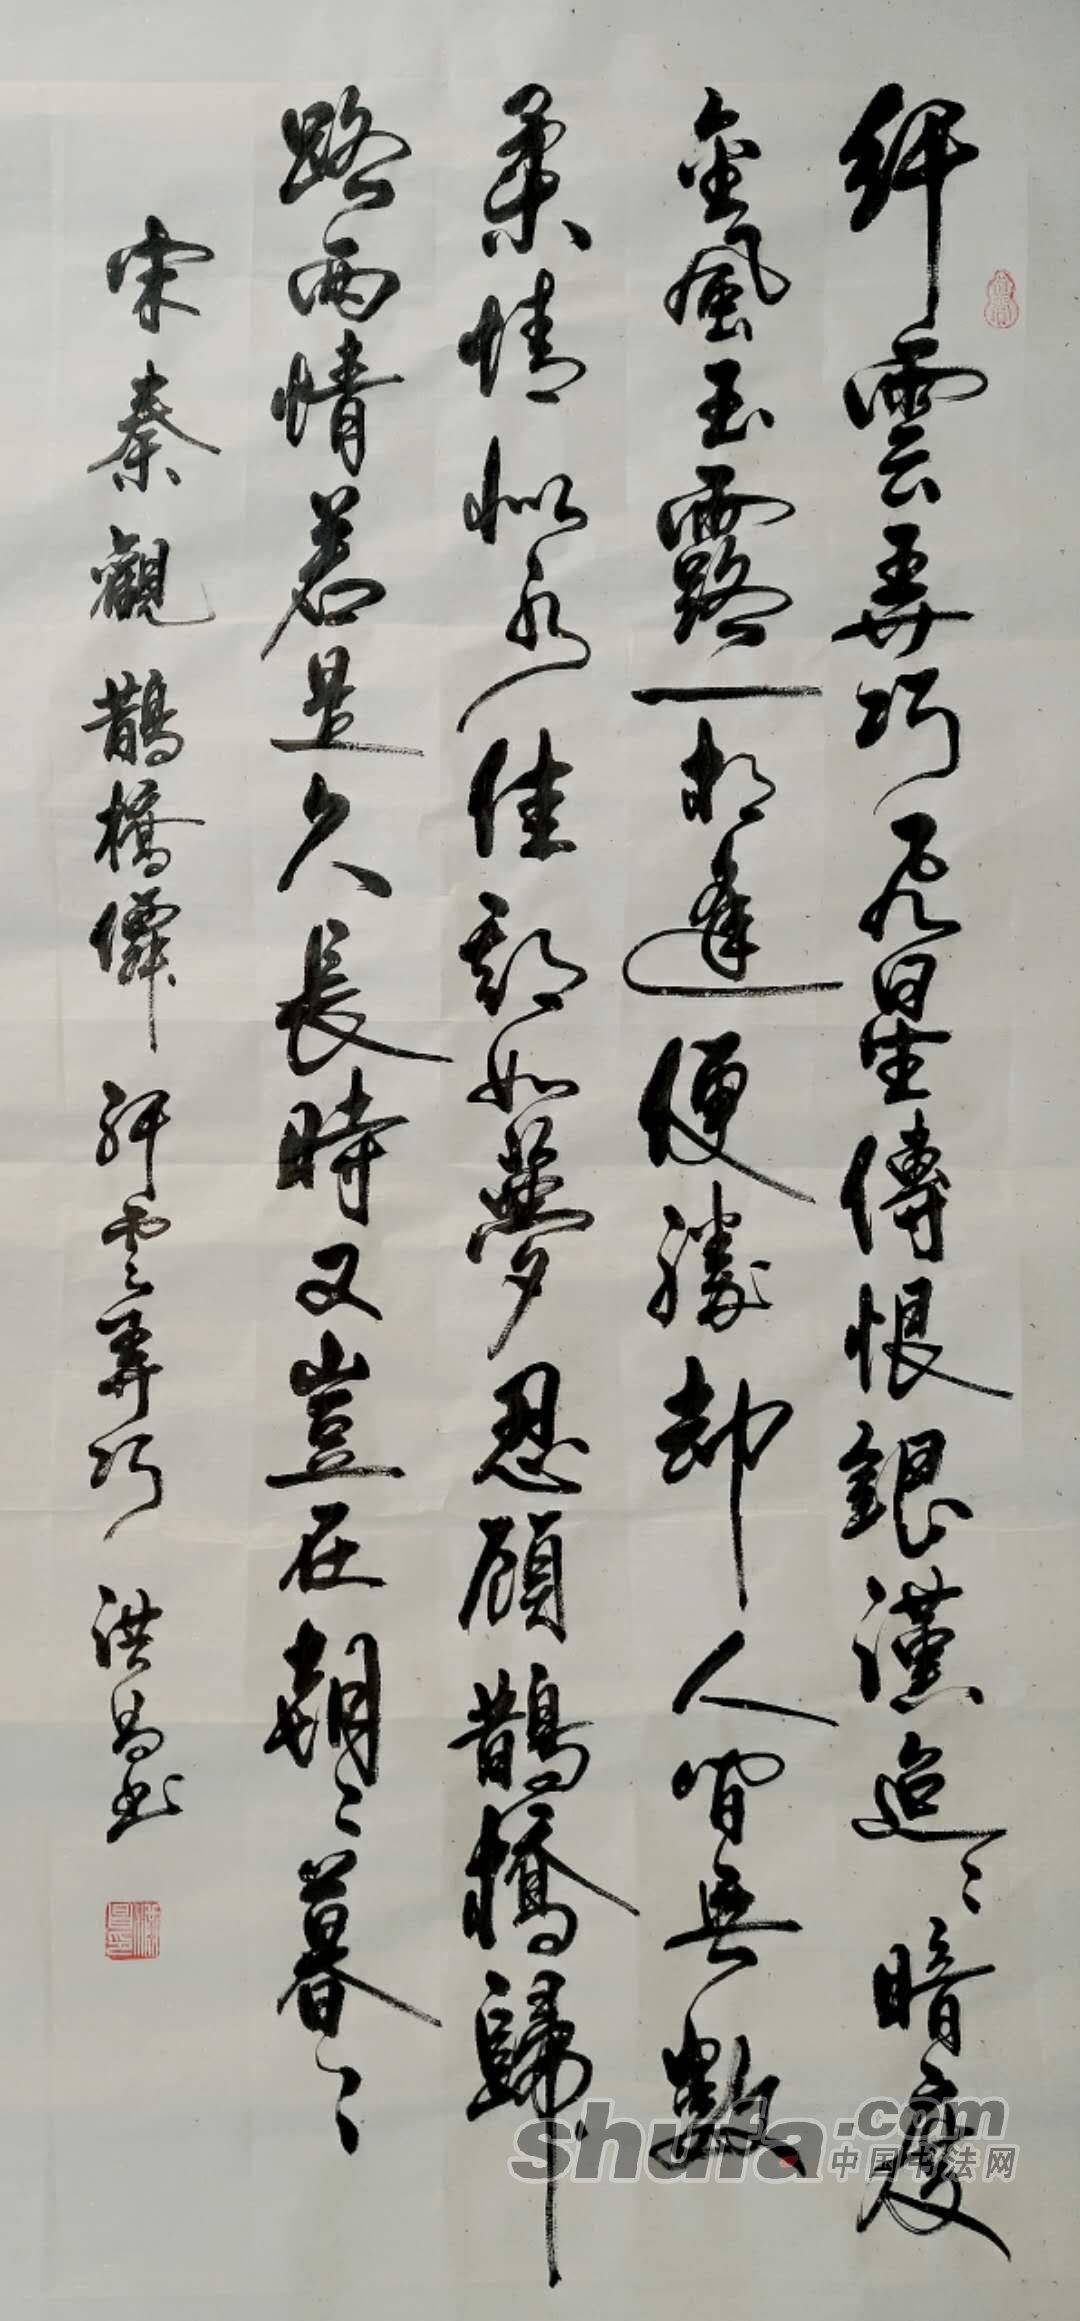 纖雲弄巧飛星傳恨銀漢迢〻暗度
金風玉露一相逢便勝卻人間無數
柔情似水佳期如夢忍顧鵲橋歸
路兩情若是久長時又豈在朝〻暮〻
宋秦觀鵲橋仙 纖雲弄巧 洪昌书
shufa.com
中国书法网